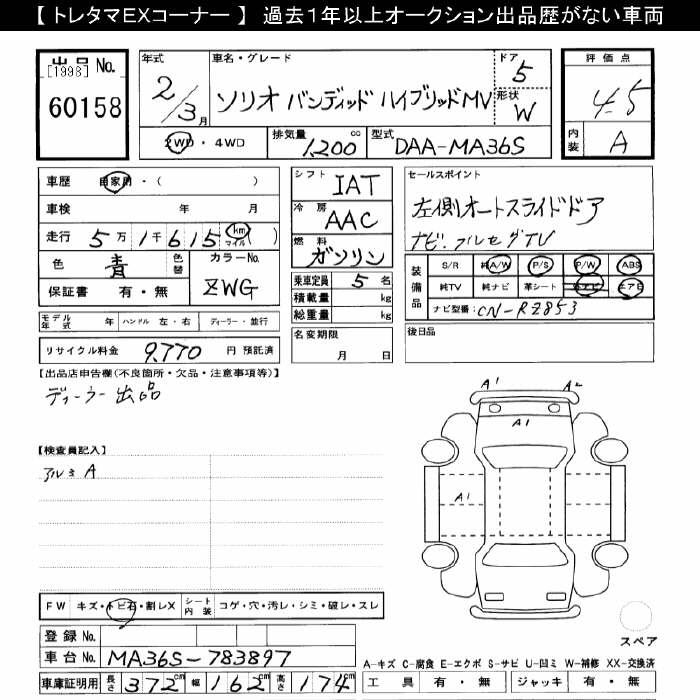 【 トレタマEXコーナー 】 過去1年以上オークション出品歴がない車両
出品 No.
[1998]
60158
年式
2/3月
車名・グレード
ソリオ バンディッド ハイブリッドMV
ドア
5
形状
W
2WD・4WD
排気量
1,200 cc
型式
DAA-MA36S
評価点
4.5
内装
A
車歴 自家用・( )
車検 年 月
走行 5万 1千 615 km マイル ( )
色 青 色替
カラーNo.
ZWG
保証書 有・無
モデル年式 年 ハンドル 左・右 ディーラー・並行
リサイクル料金 9,770 円 預託済
シフト IAT
冷房 AAC
燃料 ガソリン
乗車定員 5 名
積載量 kg
総重量 kg
名変期限
月 日
セールスポイント
左側オートスライドドア
ナビ.フルセグTV
装備品
S/R 純A/W P/S P/W ABS
純TV 純ナビ 革シート 外ナビ エアB
ナビ型番: CN-RZ853
後日品
【出品店申告欄(不良箇所・欠品・注意事項等)】
ディーラー出品
【検査員記入】
アルミ A
A1 A2
A1
A1
FW キズ・トビ石・割レX シート内装 コゲ・穴・汚レ・シミ・破レ・スレ
登録 No.
車台 No. MA36S-783897
車庫証明用 長さ 372cm 幅 162cm 高さ 174cm
スペア
A-キズ C-腐食 E-エクボ S-サビ U-凹ミ W-補修 XX-交換済
工具 有・無 ジャッキ 有・無